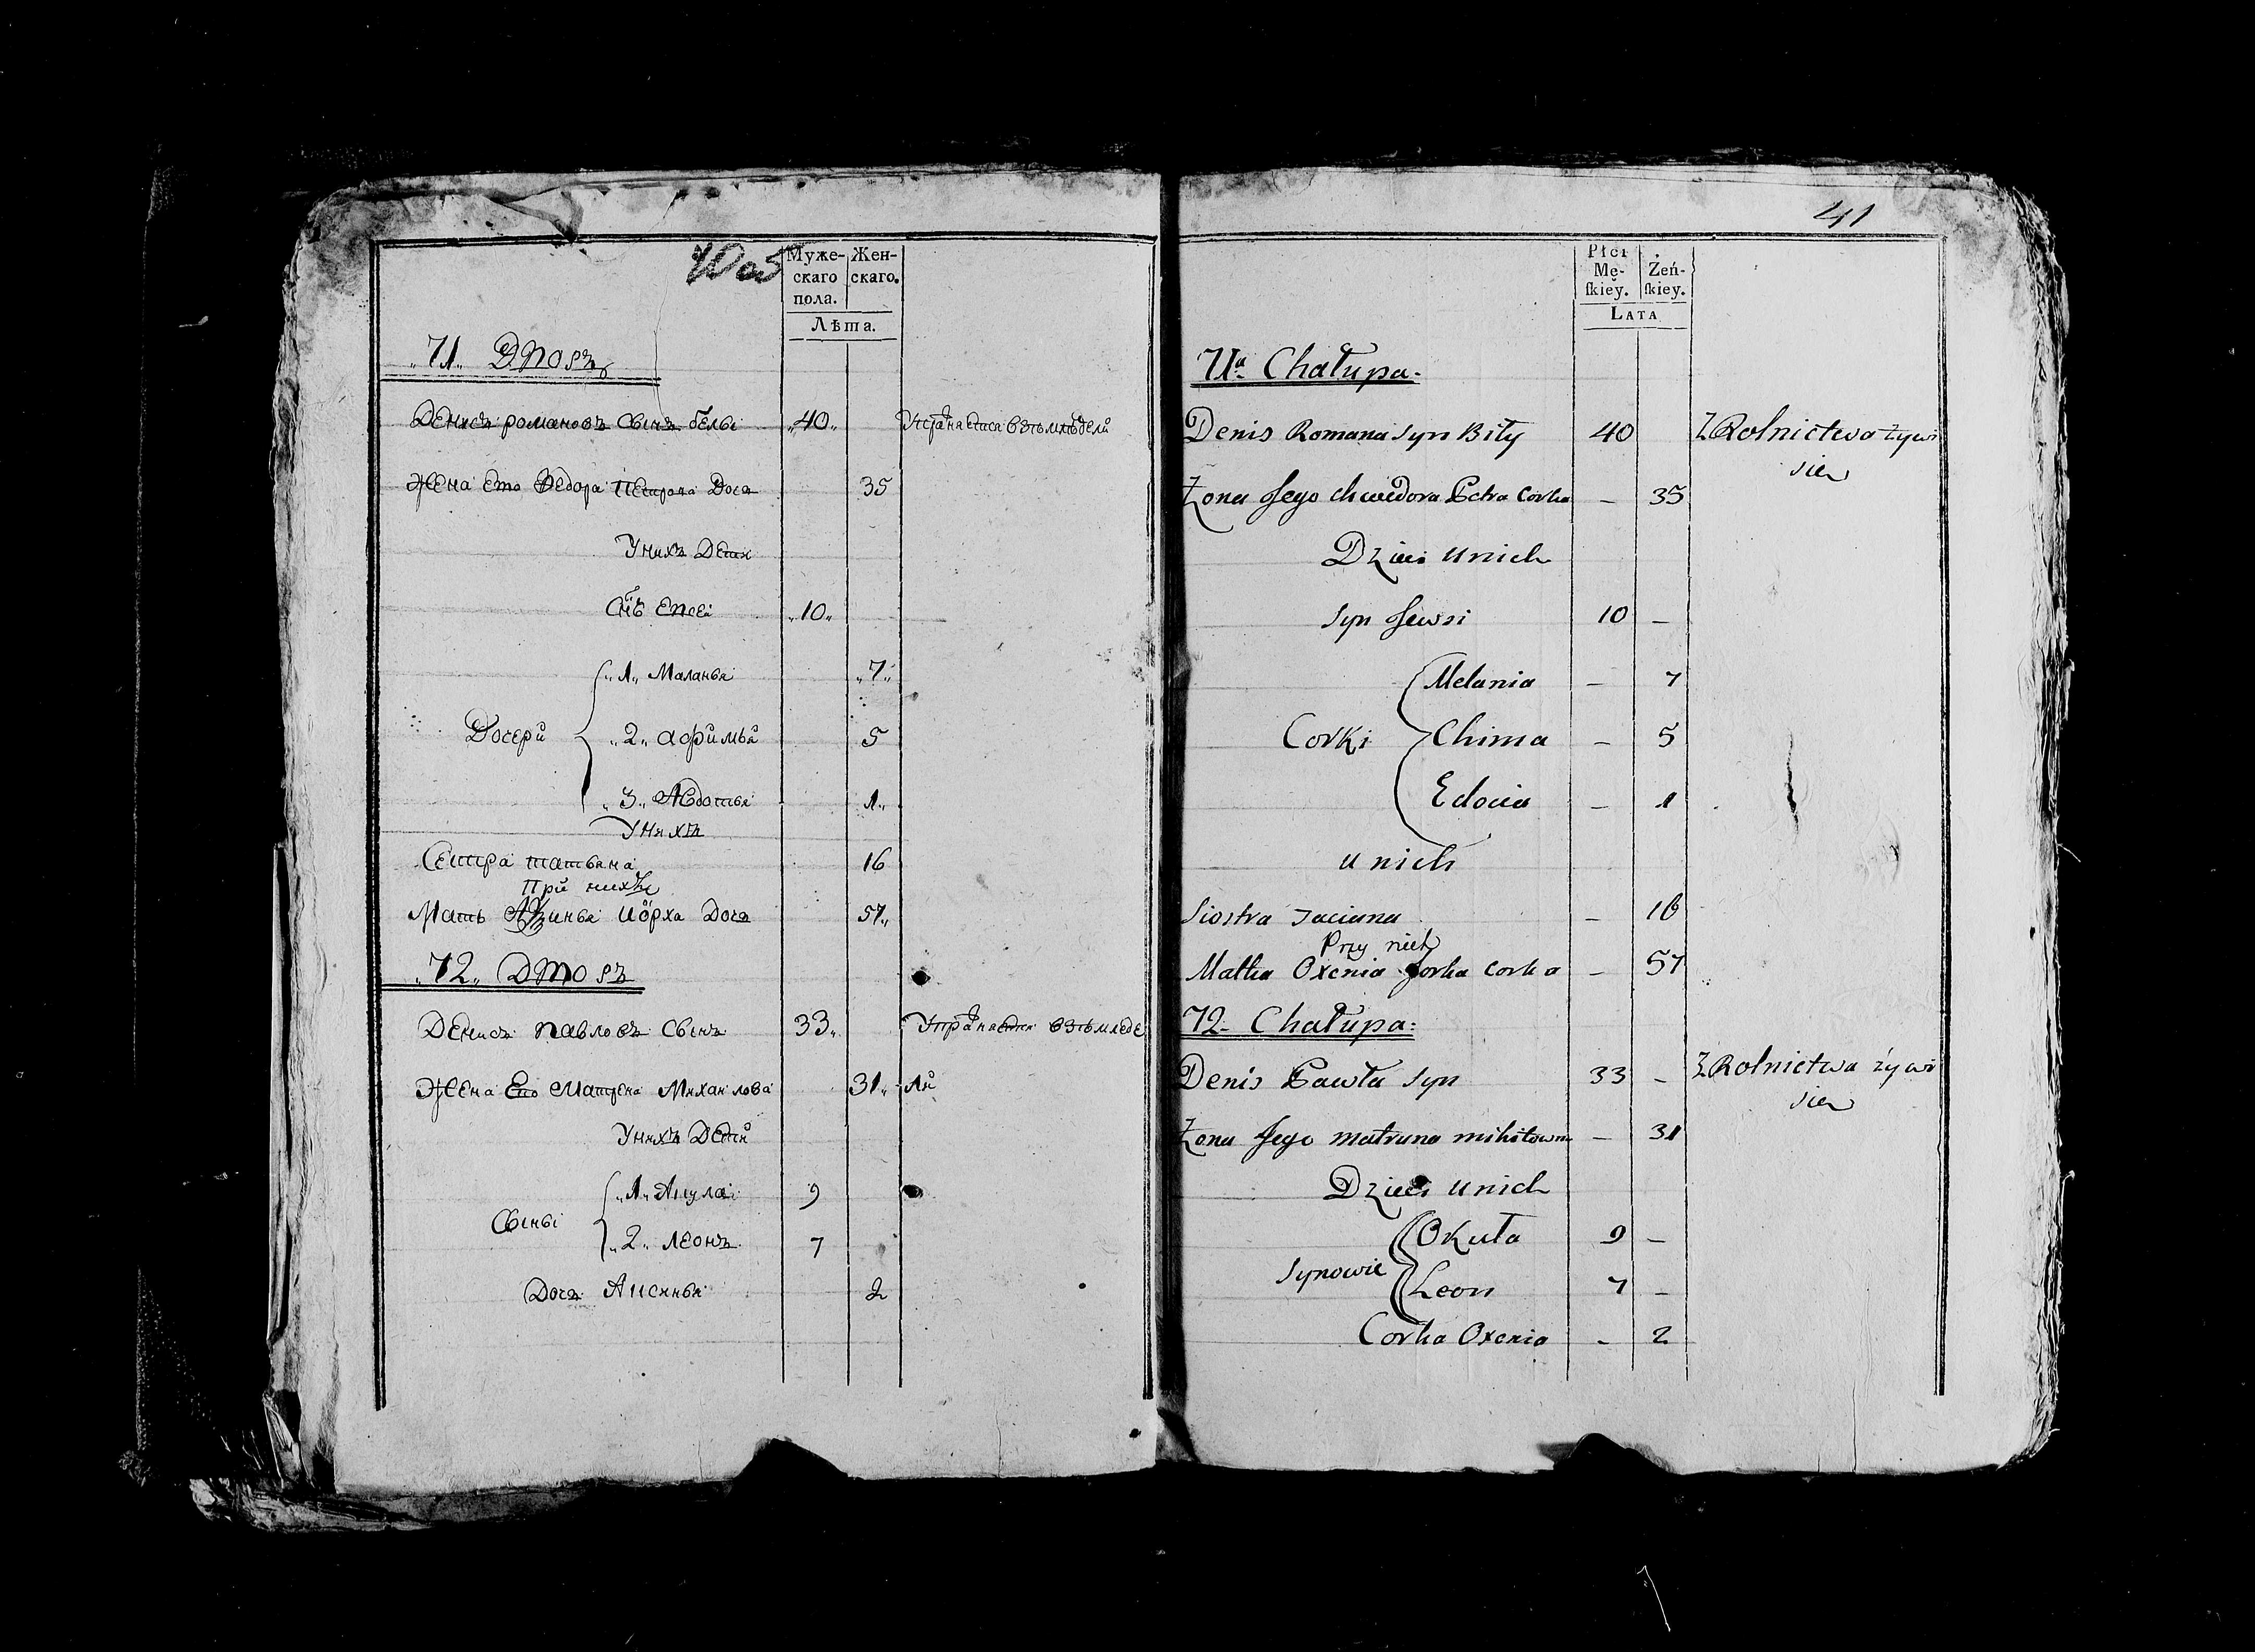 41
40 об
Муже-
скаго
пола.
Жен-
скаго.
Лѣта.
71 Дворъ
Денисъ романовъ Сынъ белы 40 Упражняется въ земледели
Жена Его Федора Петрова Доч 35
У нихъ Дети
Снъ Евсеи 10
Дочери
1 Маланья 7
2 Афимья 5
3 Авдотья 1
У нихъ
Сестра татьяна 16
При нихъ
Мать Аксинья Доч 57
72 Дворъ
Денисъ павловъ Сынъ 33 Упражняется въ земледе
Жена Его Матрена Михаилова 31 лии
У нихъ Дети
Сыны
1 Акула 9
2 леонъ 7
Доч Аксинья 2
Płci
Mę-
ſkiey.
Żeń-
ſkiey.
LATA
71ª Chałupa.
Denis Romana Syn Biły 40 Z Rolnictwa żywi
sie
Żona Jego Chwedora Petra Corka — 35
Dzieci u nich
Syn Jewsi 10 —
Corki
Melania — 7
Chima — 5
Edocia — 1
u nich
Siostra Taciana — 16
Przy nich
Matka Oxenia Jorka Corka — 57
72. Chałupa:
Denis Pawła Syn 33 — Z Rolnictwa żywi
sie
Żona Jego Matruna — 31
Dzieci u nich
Synowie
Okuła 9 —
Leon 7 —
Corka Oxenia — 2